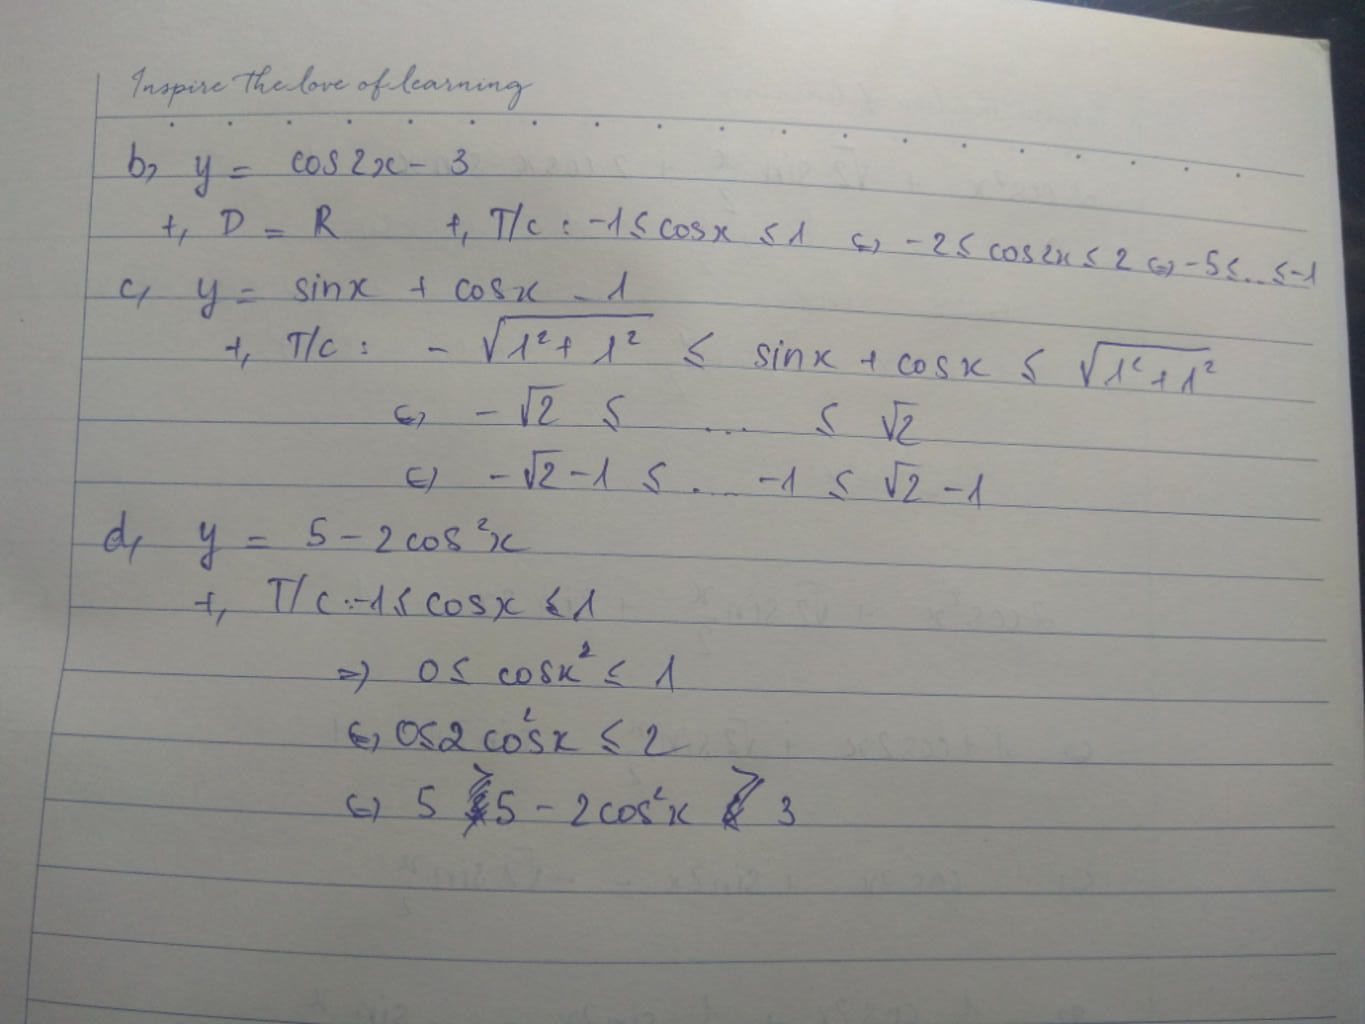 Inspire The love of learning
b, y = cos2x - 3
+, D = R +, T/c : -1 ≤ cosx ≤ 1 <=> -2 ≤ cos2x ≤ 2 <=> -5 ≤ ... ≤ -1
c, y = sinx + cosx - 1
+, T/c : - √(1² + 1²) ≤ sinx + cosx ≤ √(1² + 1²)
<=> - √2 ≤ ... ≤ √2
<=> - √2 - 1 ≤ ... - 1 ≤ √2 - 1
d, y = 5 - 2cos²x
+, T/c : -1 ≤ cosx ≤ 1
=> 0 ≤ cosx² ≤ 1
<=> 0 ≤ 2cos²x ≤ 2
<=> 5 ≥ 5 - 2cos²x ≥ 3